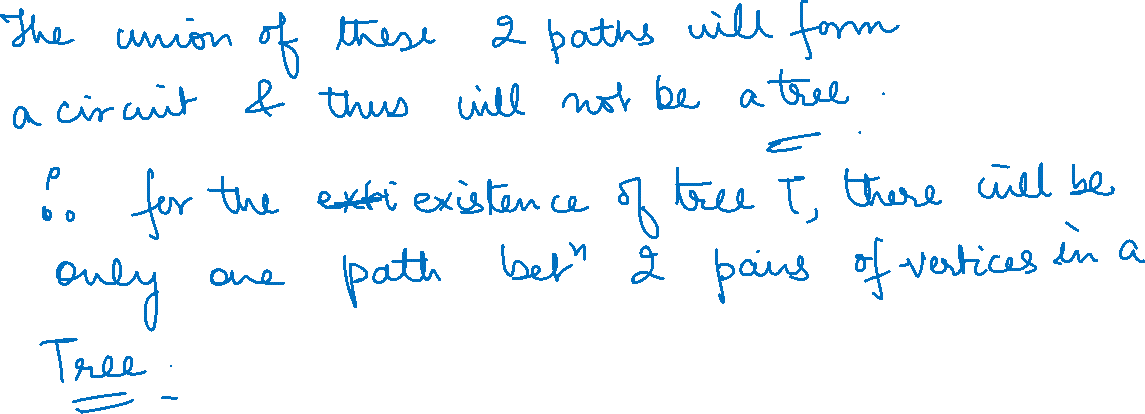 The union of these 2 paths will form
a circuit & thus will not be a tree.
∴ for the exti existence of tree T, there will be
only one path betⁿ 2 pairs of vertices in a
Tree.